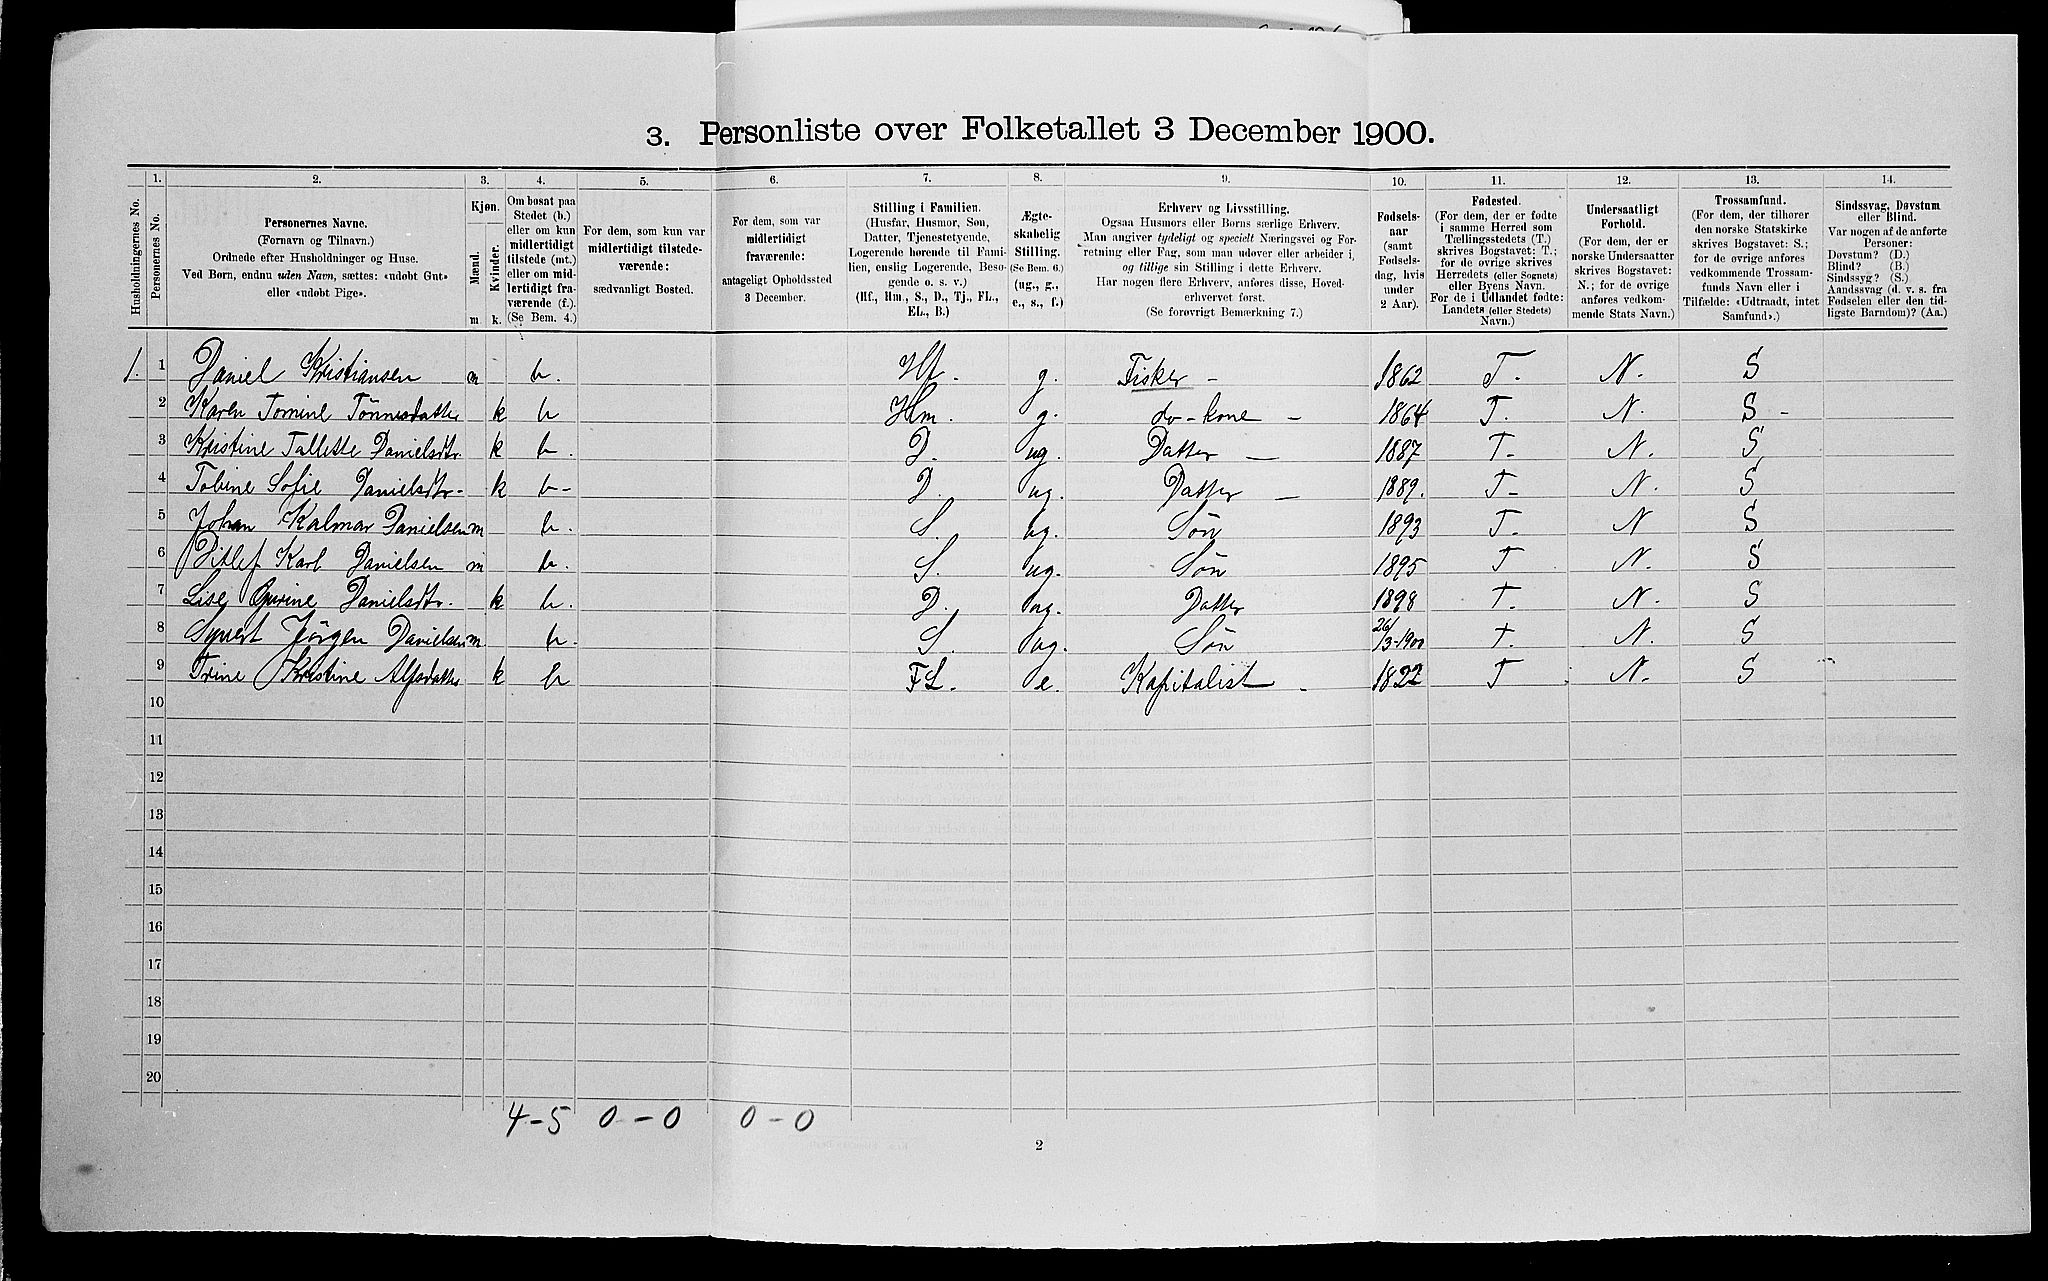 3. Personliste over Folketallet 3 December 1900.
1. 2. 3. 4. 5. 6. 7. 8. 9. 10. 11. 12. 13. 14.
Husholdningernes No.
Personernes No.
Personernes Navne.
(Fornavn og Tilnavn.)
Ordnede efter Husholdninger og Huse.
Ved Børn, endnu uden Navn, sættes: «udøbt Gut»
eller «udøbt Pige».
Kjøn.
Mænd.
Kvinder.
m. k.
Om bosat paa
Stedet (b.)
eller om kun
midlertidigt
tilstede (mt.)
eller om mid-
lertidigt fra-
værende (f.).
(Se Bem. 4.)
For dem, som kun var
midlertidigt tilstede-
værende:
sædvanligt Bosted.
For dem, som var
midlertidigt
fraværende:
antageligt Opholdssted
3 December.
Stilling i Familien.
(Husfar, Husmor, Søn,
Datter, Tjenestetyende,
Logerende hørende til Fami-
lien, enslig Logerende, Besø-
gende o. s. v.)
(Hf., Hm., S., D., Tj., FL.,
EL., B.)
Ægte-
skabelig
Stilling.
(Se Bem. 6.)
(ug., g.,
e., s., f.)
Erhverv og Livsstilling.
Ogsaa Husmors eller Børns særlige Erhverv.
Man angiver tydeligt og specielt Næringsvei og For-
retning eller Fag, som man udøver eller arbeider i,
og tillige sin Stilling i dette Erhverv.
Har nogen flere Erhverv, anføres disse, Hoved-
erhvervet først.
(Se forøvrigt Bemærkning 7.)
Fødsels-
aar
(samt
Fødsels-
dag, hvis
under
2 Aar).
Fødested.
(For dem, der er fødte
i samme Herred som
Tællingsstedets (T.)
skrives Bogstavet: T.;
for de øvrige skrives
Herredets (eller Sognets)
eller Byens Navn.
For de i Udlandet fødte:
Landets (eller Stedets)
Navn.)
Undersaatligt
Forhold.
(For dem, der er
norske Undersaatter
skrives Bogstavet:
N.; for de øvrige
anføres vedkom-
mende Stats Navn.)
Trossamfund.
(For dem, der tilhører
den norske Statskirke
skrives Bogstavet: S.;
for de øvrige anføres
vedkommende Trossam-
funds Navn eller i
Tilfælde: «Udtraadt, intet
Samfund».)
Sindssvag, Døvstum
eller Blind.
Var nogen af de anførte
Personer:
Døvstum? (D.)
Blind? (B.)
Sindssyg? (S.)
Aandssvag (d. v. s. fra
Fødselen eller den tid-
ligste Barndom)? (Aa.)
1. 1 Daniel Kristiansen m b. Hf. g. Fisker - 1862 T. N. S
2 Karen Tomine Tønnesdatter k b Hm. g. do-kone - 1864 T. N S -
3 Kristine Tallette Danielsdtr. k b. D. ug. Datter - 1887 T- N. S
4 Tobine Sofie Danielsdtr- k b- D. ug. Datter - 1889. T- N. S
5 Johan Kalmar Danielsen m b. S. ug. Søn 1893 T- N S
6 Ditlef Karl Danielsen m b. S. ug. Søn 1895 T N. S
7 Lise Gurine Danielsdtr. k b. D. ug. Datter 1898 T. N. S
8 Syvert Jørgen Danielsen m b. S. ug. Søn 26/3-1900 T. N. S
9 Trine Kristine Alfsdatter k b FL. e. Kapitalist - 1822 T N. S
10
11
12
13
14
15
16
17
18
19
20
4-5 0-0 0-0
2